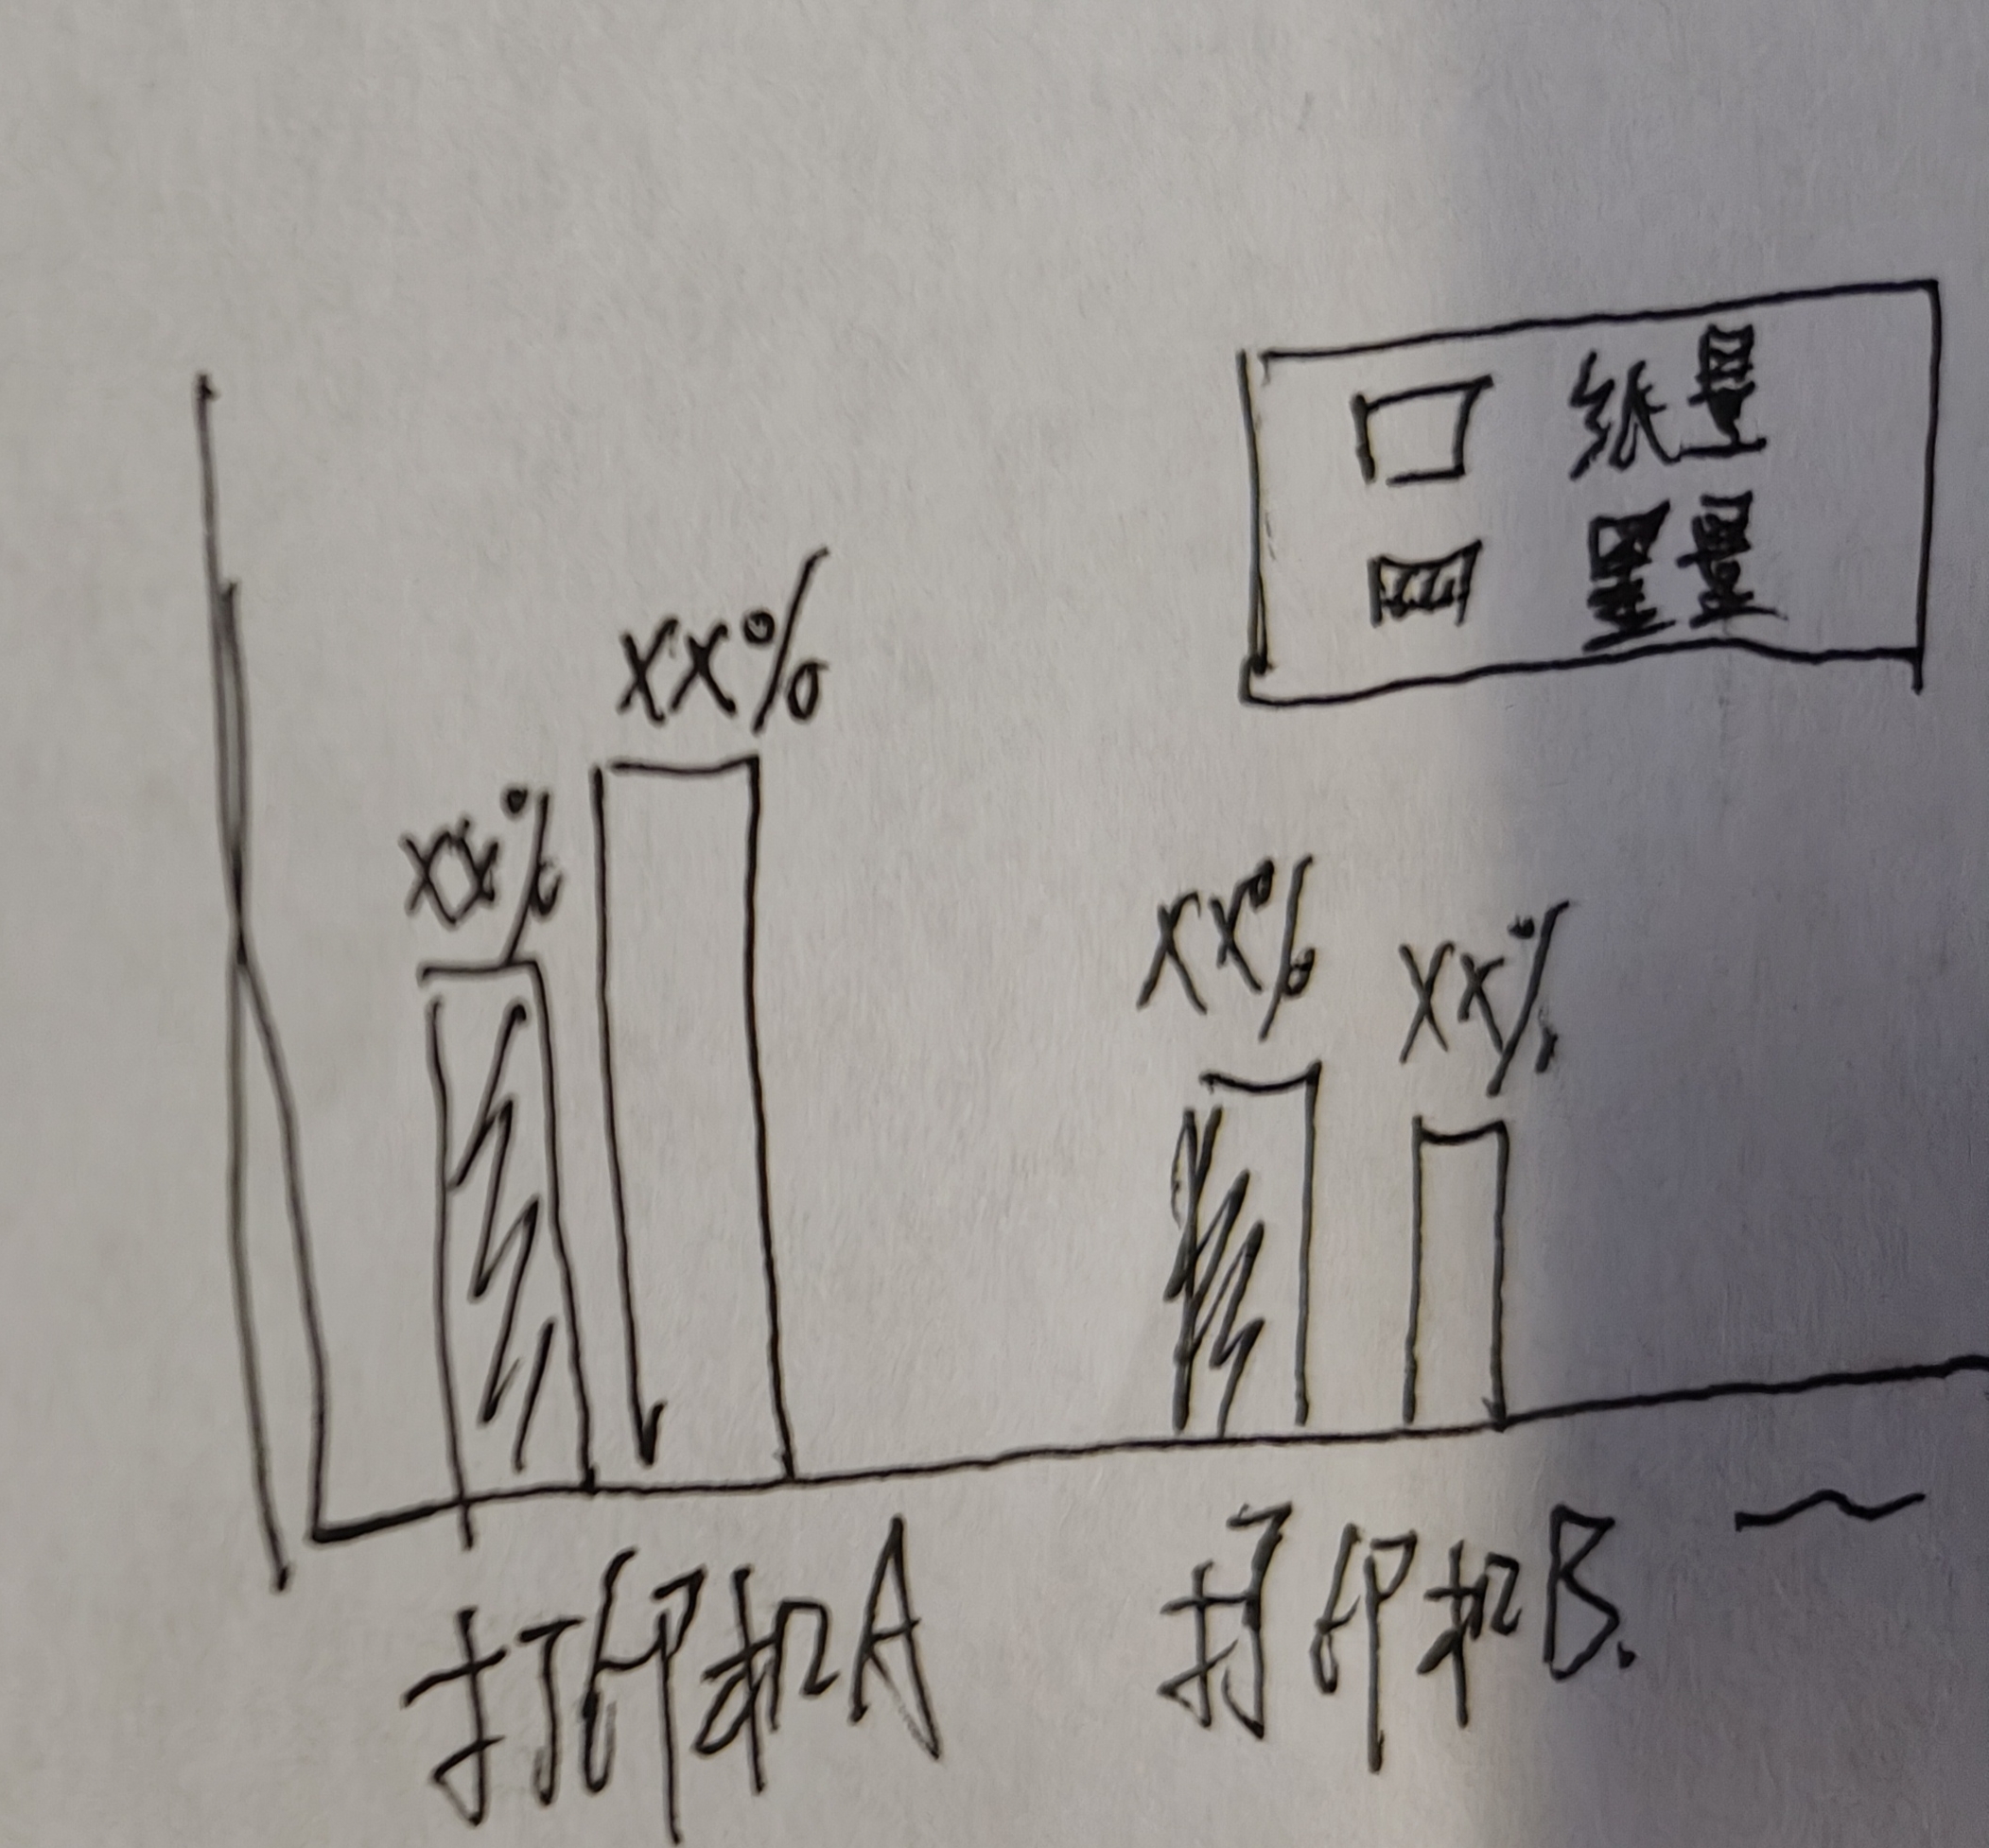 纸量
墨量
xx%
xx%
xx%
xx%
打印机A
打印机B.